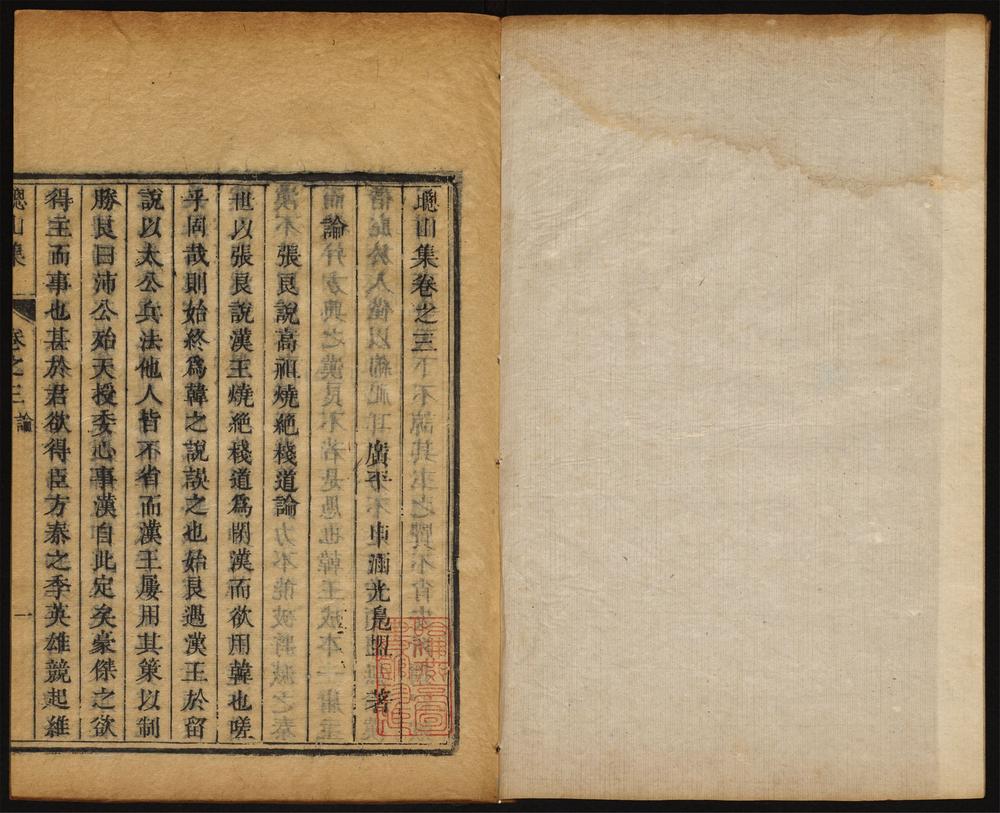 聰山集卷之三
廣平 申涵光鳧盟 著
論
張良說高祖燒絕棧道論
世以張良說漢王燒絕棧道為閉漢而欲用韓也嗟
乎固哉則始終為韓之說誤之也始良遇漢王於留
說以太公兵法他人皆不省而漢王屢用其策以制
勝良曰沛公殆天授委心事漢自此定矣豪傑之欲
得主而事也甚於君欲得臣方秦之季英雄競起維
聰山集 卷之三 論 一